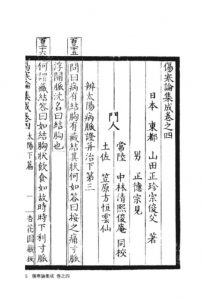 傷寒論集成卷之四
日本 東都 山田正珍宗俊父 著
男 正德宗見
門人
常陸 中林清熙俊庵 同校
土佐 笠原方恒雲仙
辨太陽病脈證幷治下第三
問曰病有結胸有藏結其狀何如答曰按之痛寸脈
浮關脈沈名曰結胸也
何謂藏結答曰如結胸狀飲食如故時時下利寸脈
傷寒論集成 卷之四